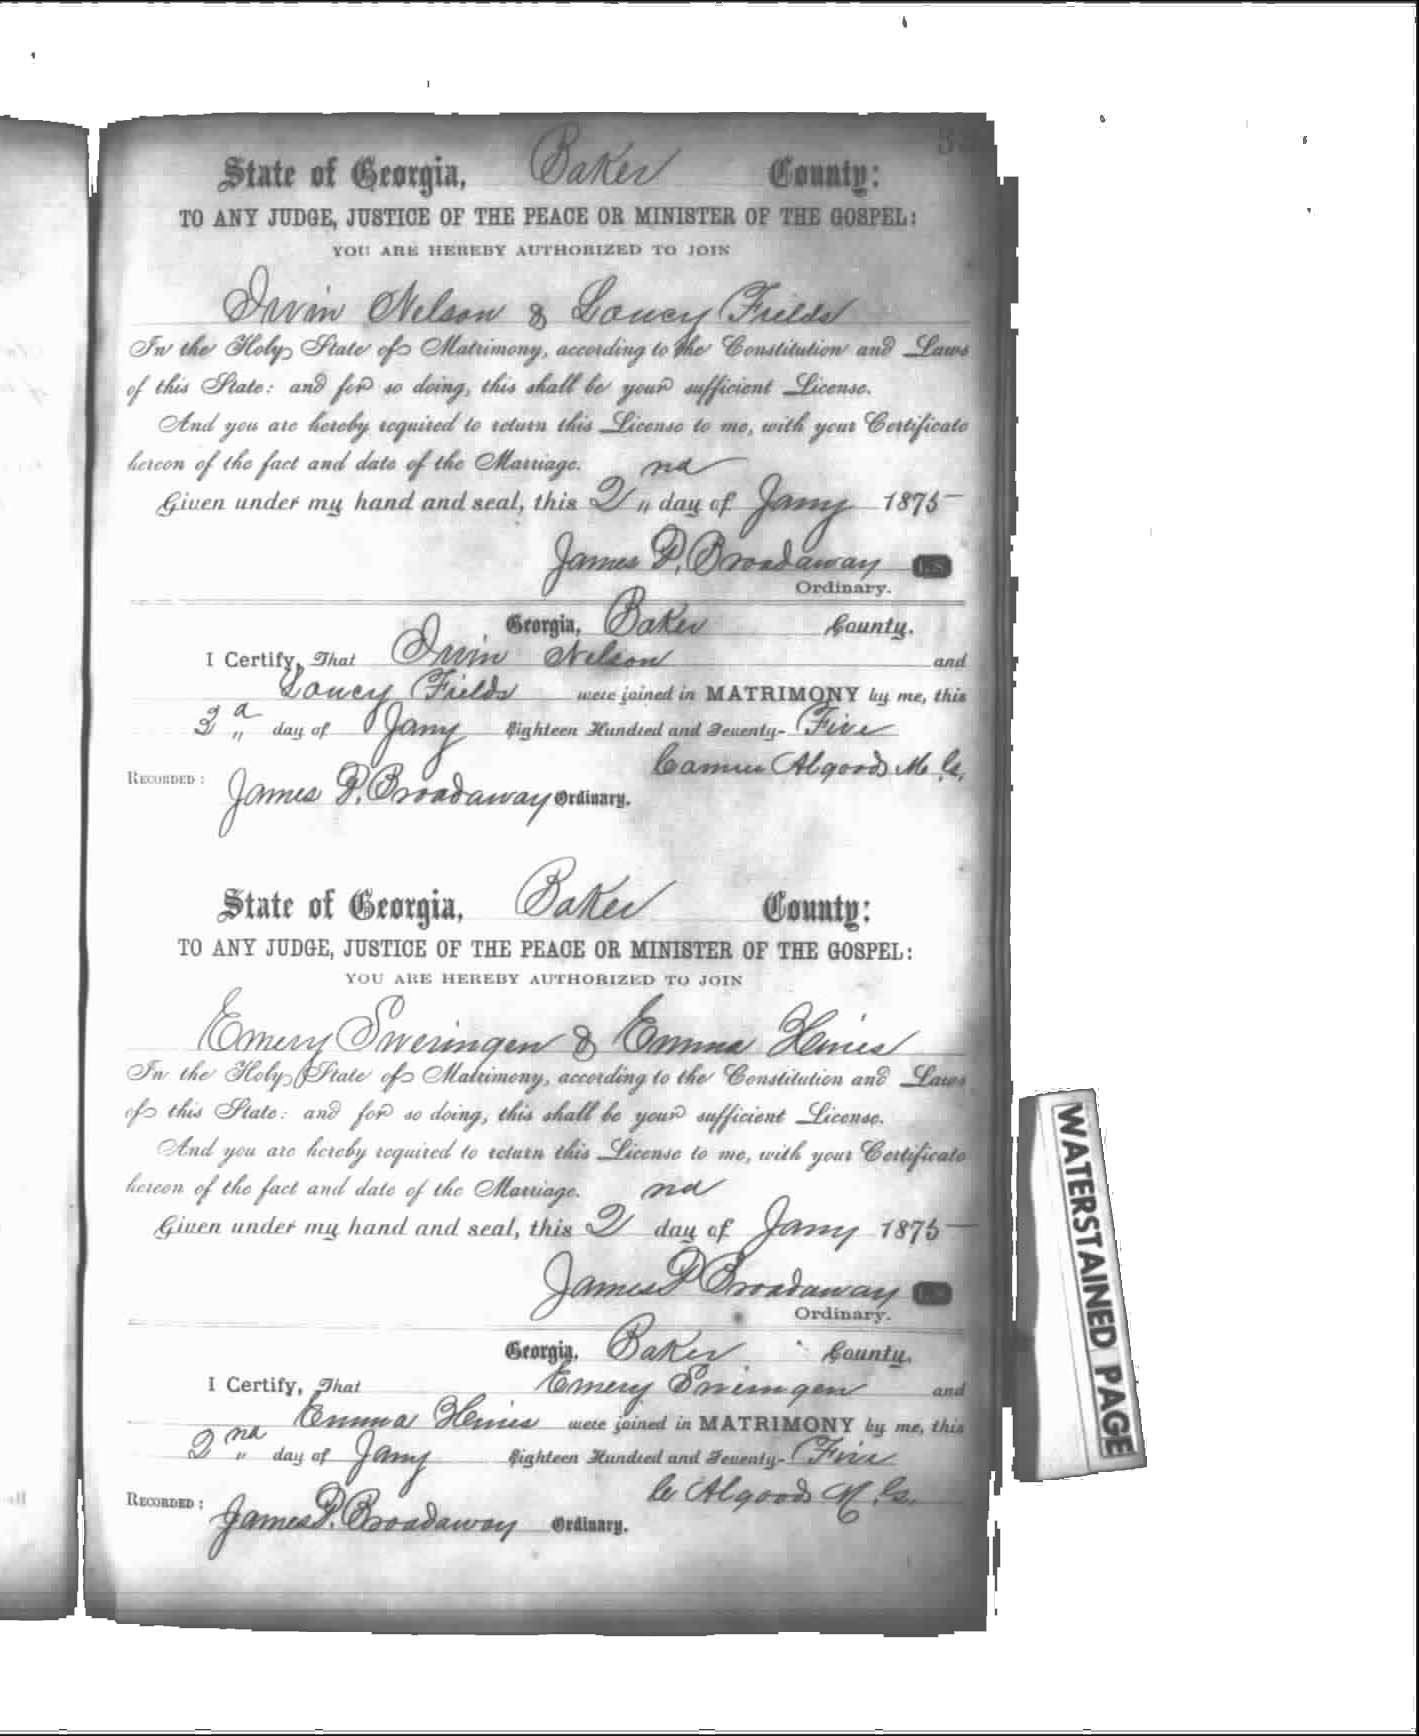 State of Georgia, Baker County:
TO ANY JUDGE, JUSTICE OF THE PEACE OR MINISTER OF THE GOSPEL:
YOU ARE HEREBY AUTHORIZED TO JOIN
Irvin Nelson & Loucy Fields
In the Holy State of Matrimony, according to the Constitution and Laws
of this State: and for so doing, this shall be your sufficient License.
And you are hereby required to return this License to me, with your Certificate
hereon of the fact and date of the Marriage.
Given under my hand and seal, this 2nd „ day of Jany 1875
James P. Broadaway L.S.
Ordinary.
Georgia, Baker County.
I Certify, That Irvin Nelson and
Loucy Fields were joined in MATRIMONY by me, this
3d „ day of Jany Eighteen Hundred and Seventy-Five
Algood M.G.
RECORDED:
James P. Broadaway Ordinary.
State of Georgia, Baker County:
TO ANY JUDGE, JUSTICE OF THE PEACE OR MINISTER OF THE GOSPEL:
YOU ARE HEREBY AUTHORIZED TO JOIN
Emery Sweringen & Emma Hines
In the Holy State of Matrimony, according to the Constitution and Laws
of this State: and for so doing, this shall be your sufficient License.
And you are hereby required to return this License to me, with your Certificate
hereon of the fact and date of the Marriage.
Given under my hand and seal, this 2nd day of Jany 1875
James P Broadaway L.S.
Ordinary.
Georgia, Baker County.
I Certify, That Emery Sweringen and
Emma Hines were joined in MATRIMONY by me, this
2nd „ day of Jany Eighteen Hundred and Seventy-Five
C Algood M.G.
RECORDED:
James P. Broadaway Ordinary.
WATERSTAINED PAGE